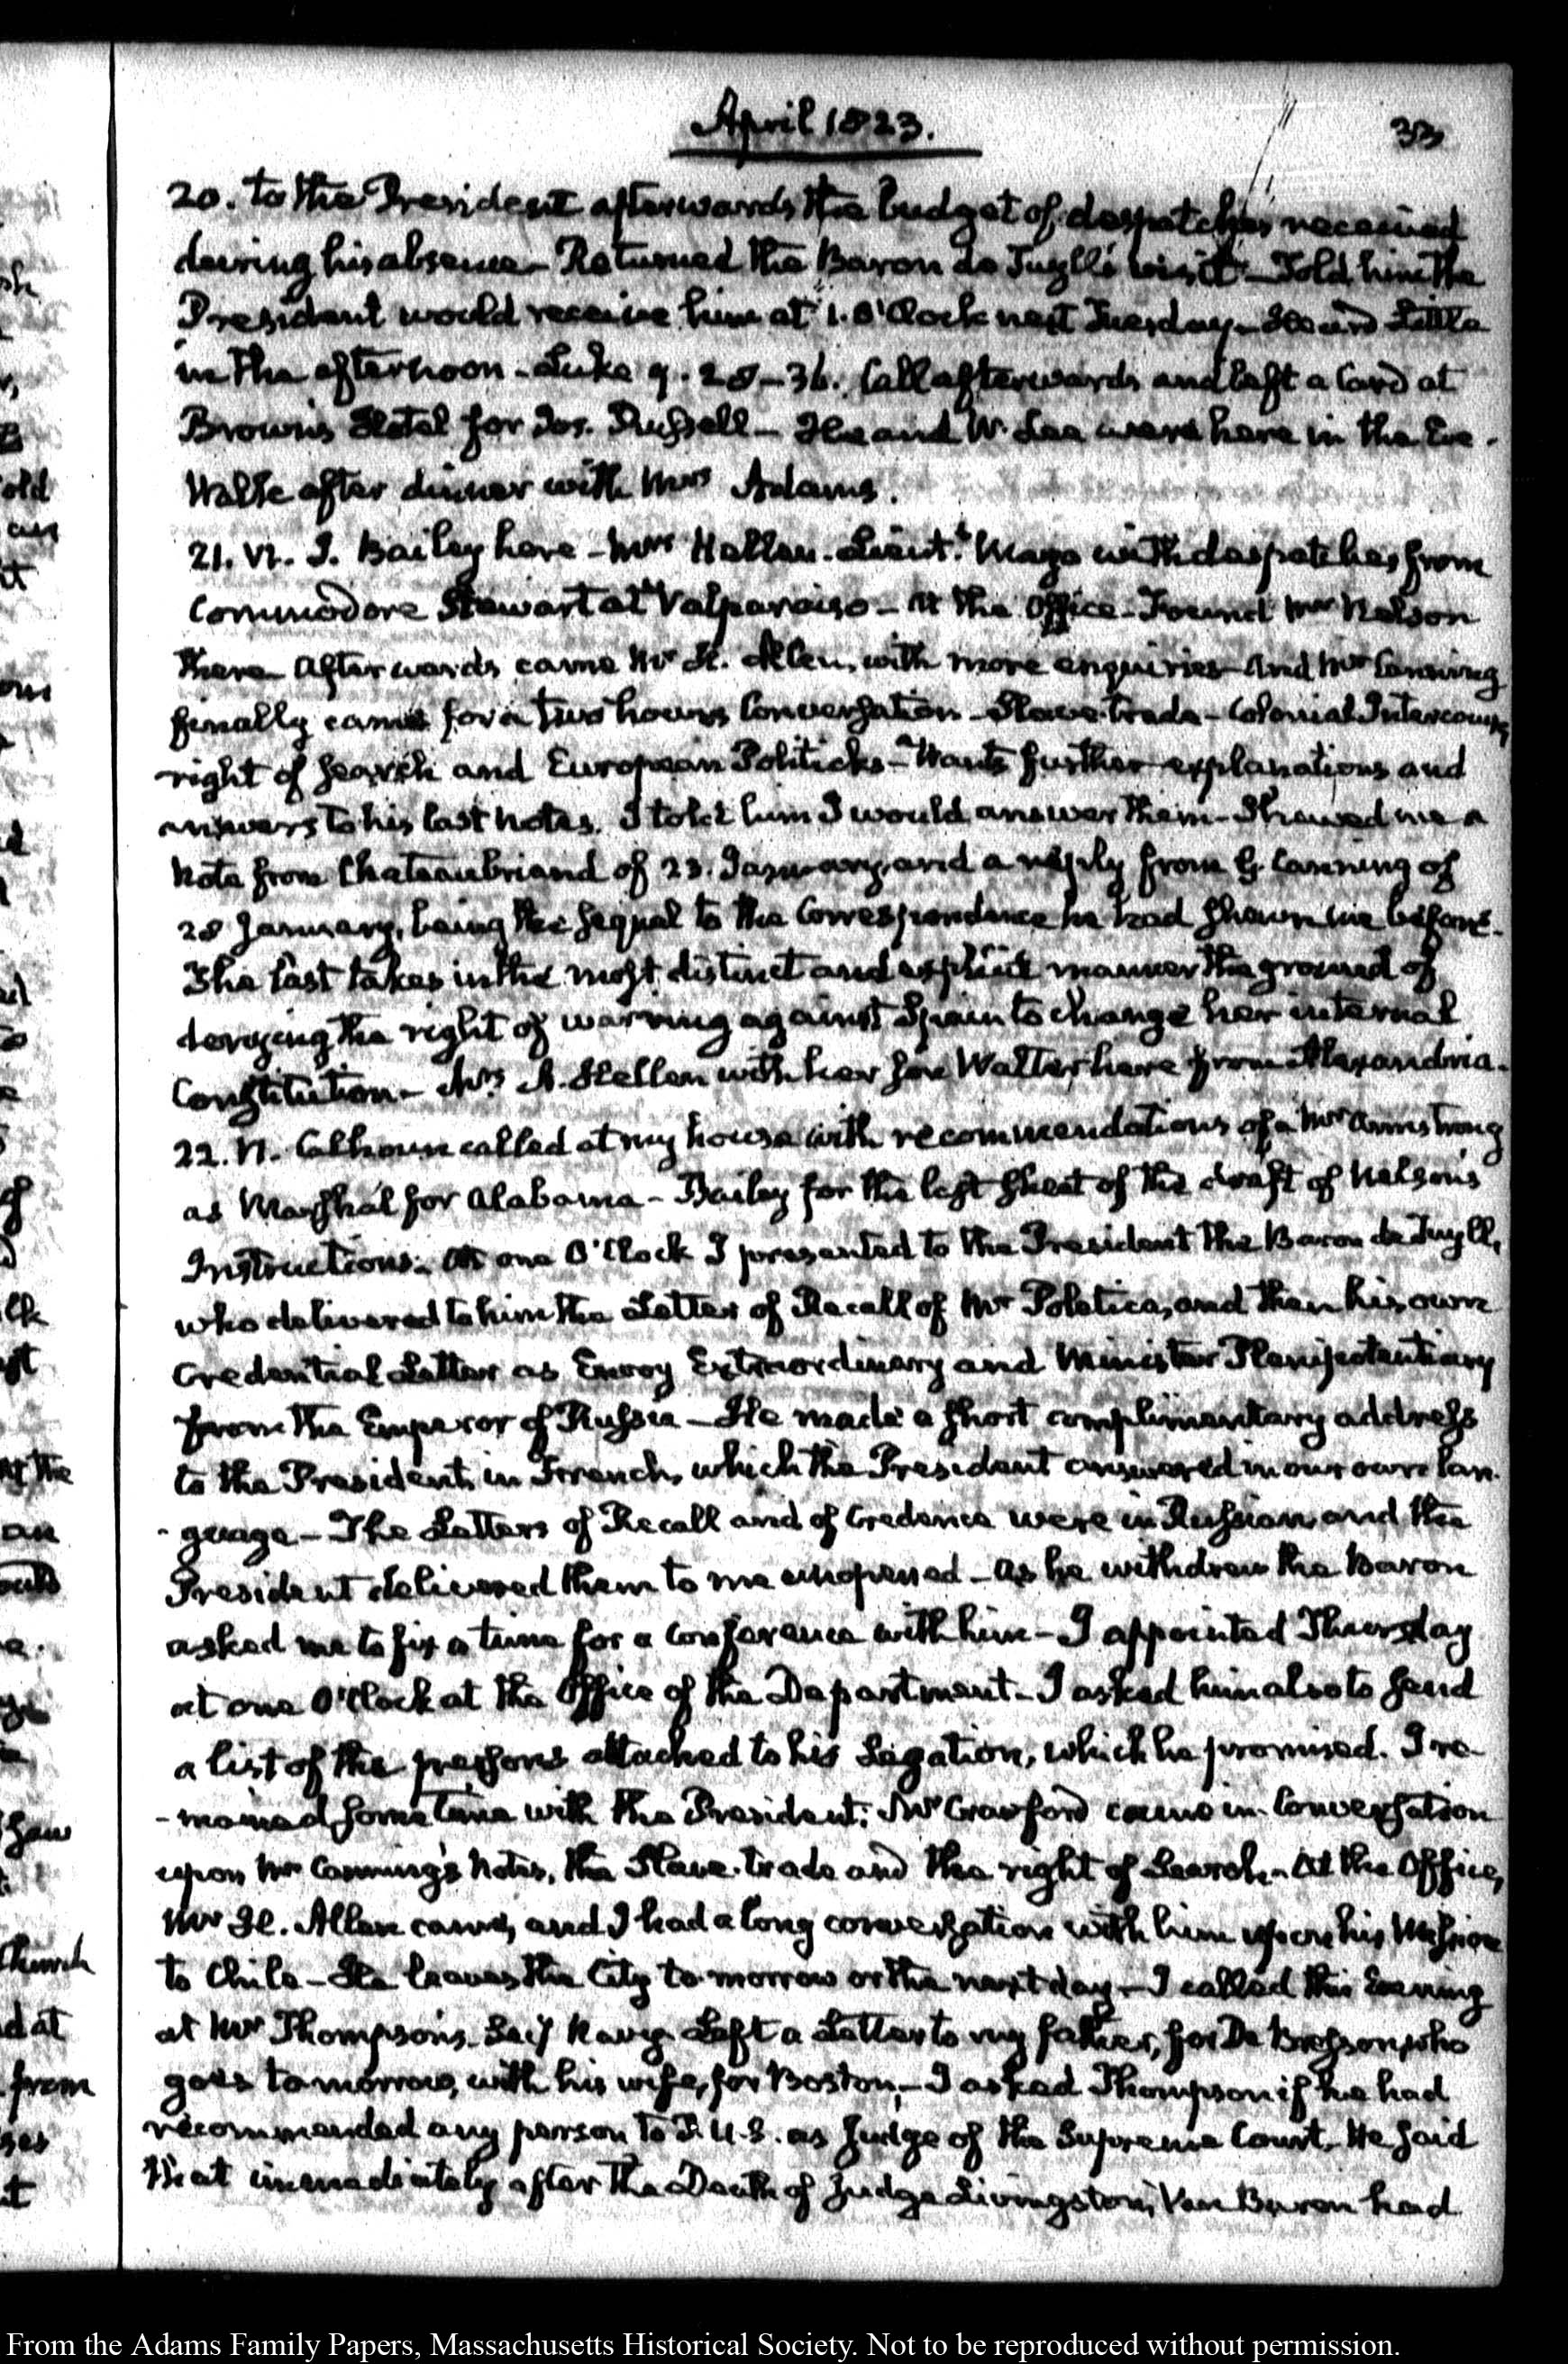 April 1823.
33
20. to the President afterwards the budget of despatches received
during his absence – Returned the Baron de Tuyll's visit – Told him the
President would receive him at 1. O'Clock next Tuesday – Heard Little
in the afternoon – Luke 9. 28–36. Call afterwards and left a Card at
Brown's Hotel for Jos. Russell – He and W. Lee were here in the Eve.
Walk after dinner with Mrs Adams.
21. VI. J. Bailey here – Mrs Hellen. Lieut. Mayo with despatches from
Commodore Stewart at Valparaiso – At the Office – Found Mr Nelson
there – Afterwards came Mr H. Allen, with more enquiries – And Mr Canning
finally came for a two hours Conversation – Slave-trade – Colonial Intercourse,
right of search and European Politicks – Wants further explanations and
answers to his last notes. I told him I would answer them – Shewed me a
Note from Chateaubriand of 23. January, and a reply from G. Canning of
28 January, being the sequel to the Correspondence he had shewn me before.
The last takes in the most distinct and explicit manner the ground of
denying the right of warring against Spain to change her internal
Constitution – Mrs A. Hellen with her son Walter here from Alexandria.
22. VI. Calhoun called at my house with recommendations of a Mr Armstrong
as Marshal for Alabama – Bailey for the last sheet of the draft of Nelson's
Instructions. At one O'Clock I presented to the President the Baron de Tuyll,
who delivered to him the Letter of Recall of Mr Poletica, and then his own
Credential Letter as Envoy Extraordinary and Minister Plenipotentiary
from the Emperor of Russia – He made a short complimentary address
to the President, in French, which the President answered in our own lan-
-guage – The Letters of Recall and of Credence were in Russian, and the
President delivered them to me unopened – As he withdrew the Baron
asked me to fix a time for a Conference with him – I appointed Thursday
at one O'Clock at the Office of the Department – I asked him also to send
a list of the persons attached to his Legation, which he promised. I re-
-mained some time with the President; Mr Crawford came in. Conversation
upon Mr Canning's Notes, the Slave-trade and the right of Search – At the Office,
Mr H. Allen came, and I had a long conversation with him upon his Mission
to Chile – He leaves the City to-morrow or the next day – I called this Evening
at Mr Thompson's. Sec'y Navy. Left a Letter to my father, for De Bresson, who
goes tomorrow, with his wife, for Boston – I asked Thompson if he had
recommended any person to P. U.S. as Judge of the Supreme Court. He said
that immediately after the Death of Judge Livingston, Van Buren had
From the Adams Family Papers, Massachusetts Historical Society. Not to be reproduced without permission.